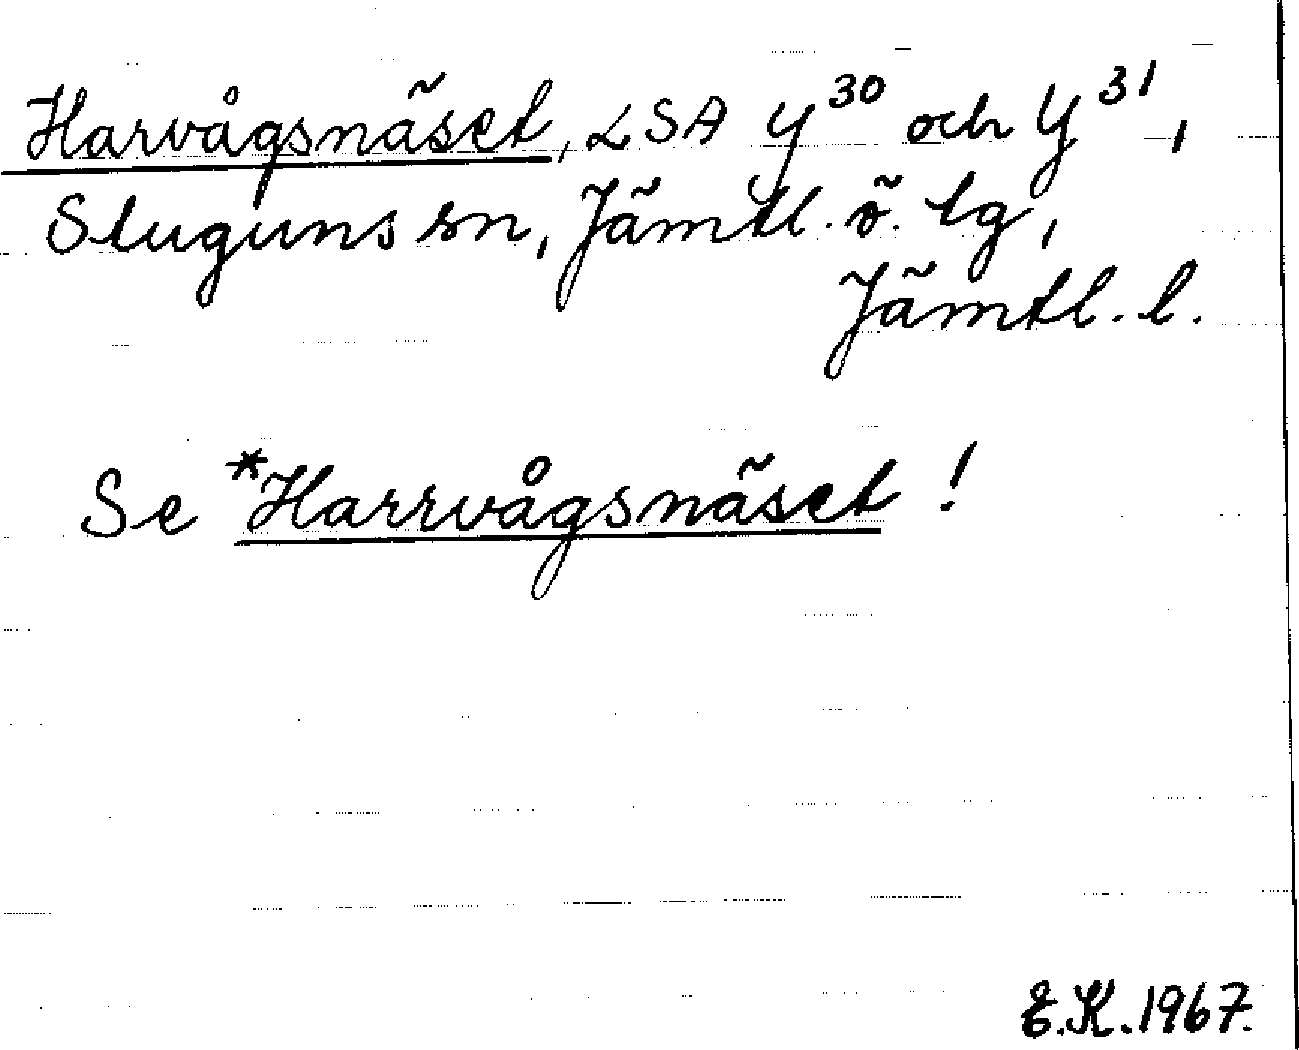 Harvågsnäset, LSA Y30 och Y31,
Stuguns sn, Jämtl. ö. tg,
Jämtl. l.
Se *Harrvågsnäset!
E.K. 1967.